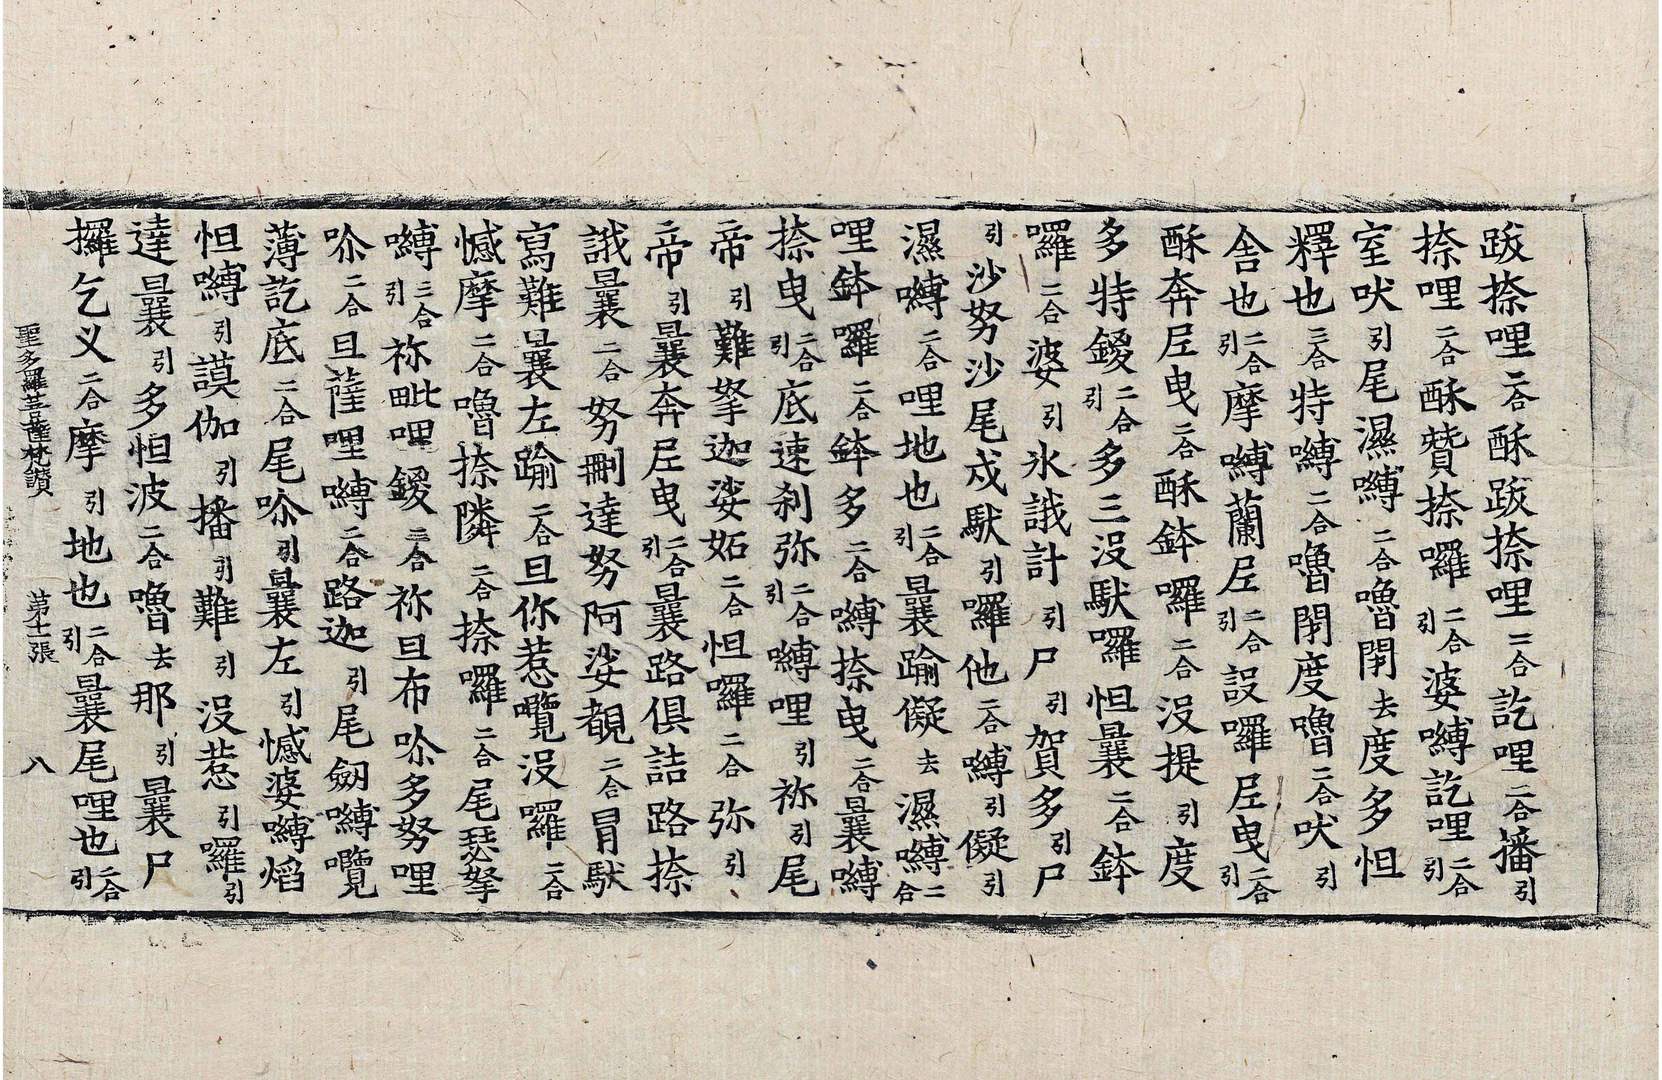 跋捺哩二合酥跋捺哩二合訖哩二合播引
捺哩二合酥贊捺囉二合引婆嚩訖哩二合引
室吠引尾濕嚩二合嚕閉去度多怛
釋也三合特嚩二合嚕閉度嚕二合吠引
舍也二合引摩嚩蘭𡱝二合引設囉𡱝曳二合引
酥奔𡱝曳二合酥鉢囉二合沒提引度
多特鑁二合引多三沒馱囉怛曩二合鉢
囉二合婆引氷誐計引尸引賀多引尸
引沙努沙尾戍馱引囉他二合嚩引儗引
濕嚩二合哩地也二合引曩踰儗去濕嚩二合
哩鉢囉二合鉢多二合嚩捺曳二合曩嚩
捺曳二合引底速刹弥二合引嚩哩引祢引尾
帝引難拏迦娑妬二合怛囉二合弥引
帝引曩奔𡱝曳二合引曩路俱詰路捺
誐曩二合努刪達努阿娑覩二合冐馱
寫難曩左踰二合旦你惹嚂沒囉二合
憾摩二合嚕捺隣二合捺囉二合尾瑟拏
嚩三合引祢毗哩鑁三合祢旦布哛多努哩
哛二合旦薩哩嚩二合路迦引尾劒嚩嚂
薄訖底二合尾哛引曩左引憾婆嚩熖
怛嚩引謨伽引播引難引沒惹引囉引
達曩引多怛波二合嚕去那引曩尸
攞乞义二合摩引地也二合引曩尾哩也二合引
聖多羅菩薩梵讚 第十一張 八